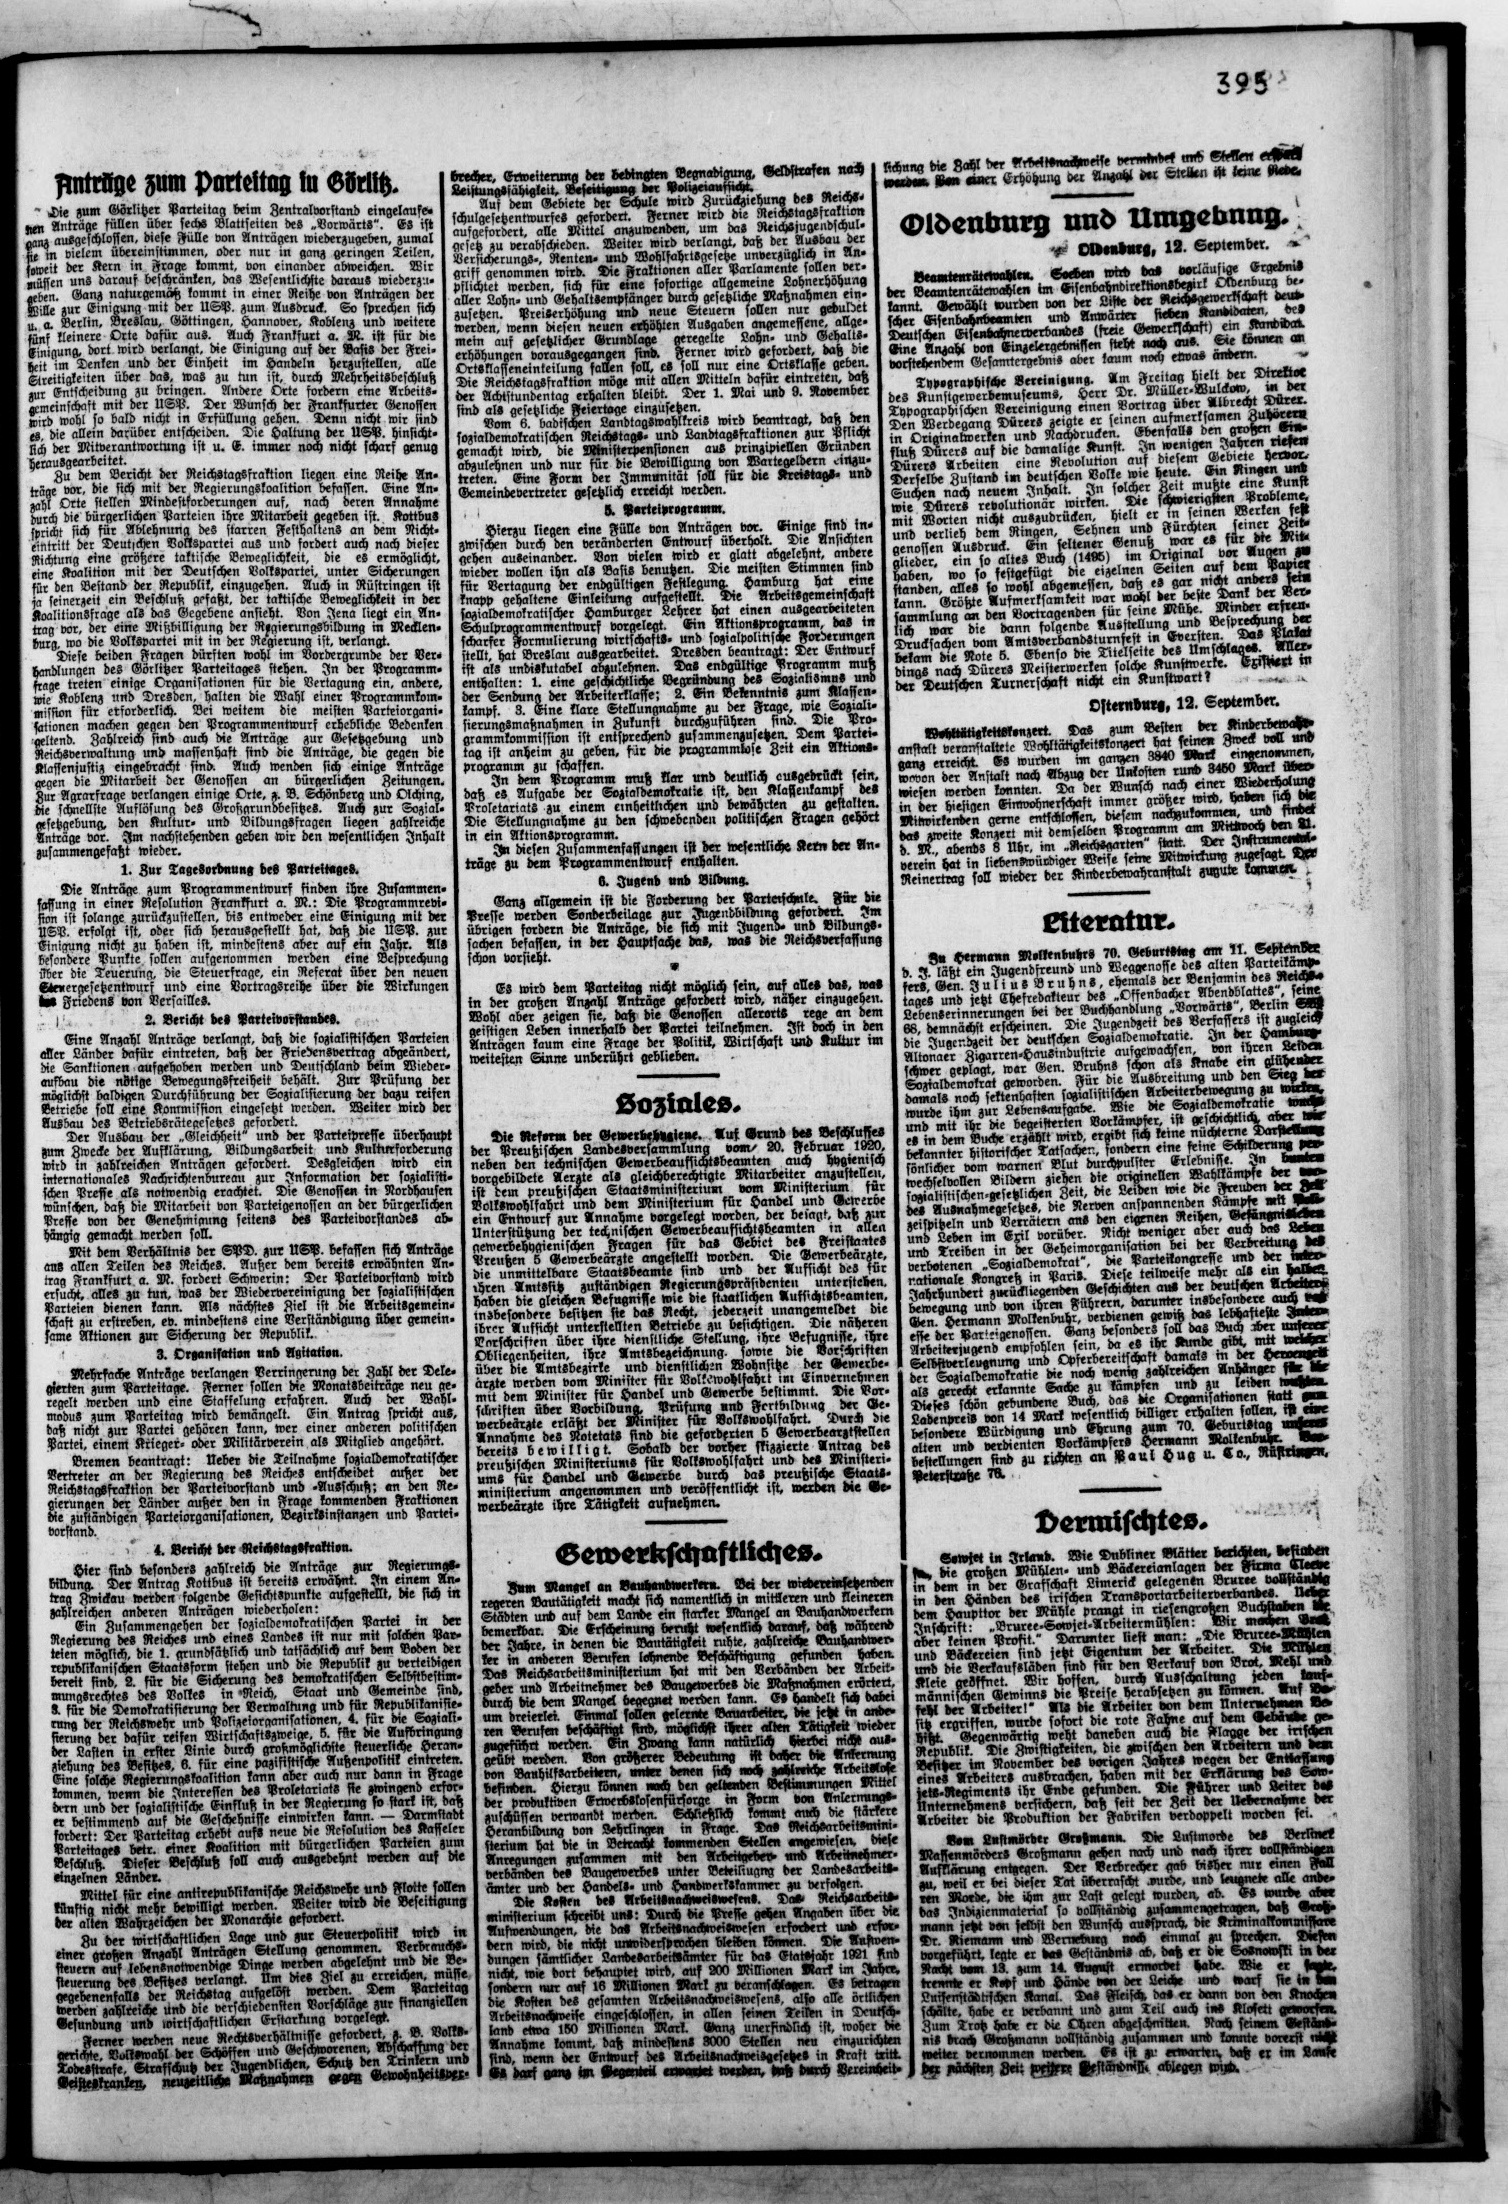 395
Anträge zum Parteitag in Görlitz.
Die zum Görlitzer Parteitag beim Zentralvorstand eingelaufe-
nen Anträge füllen über sechs Blattseiten des „Vorwärts“. Es ist
ganz ausgeschlossen, diese Fülle von Anträgen wiederzugeben, zumal
sie in vielem übereinstimmen, oder nur in ganz geringen Teilen,
soweit der Kern in Frage kommt, von einander abweichen. Wir
müssen uns darauf beschränken, das Wesentlichste daraus wiederzu-
geben. Ganz naturgemäß kommt in einer Reihe von Anträgen der
Wille zur Einigung mit der USP. zum Ausdruck. So sprechen sich
u. a. Berlin, Breslau, Göttingen, Hannover, Koblenz und weitere
fünf kleinere Orte dafür aus. Auch Frankfurt a. M. ist für die
Einigung, dort wird verlangt, die Einigung auf der Basis der Frei-
heit im Denken und der Einheit im Handeln herzustellen, alle
Streitigkeiten über das, was zu tun ist, durch Mehrheitsbeschluß
zur Entscheidung zu bringen. Andere Orte fordern eine Arbeits-
gemeinschaft mit der USP. Der Wunsch der Frankfurter Genossen
wird wohl so bald nicht in Erfüllung gehen. Denn nicht wir sind
es, die allein darüber entscheiden. Die Haltung der USP. hinsicht-
lich der Mitverantwortung ist u. E. immer noch nicht scharf genug
herausgearbeitet.
Zu dem Bericht der Reichstagsfraktion liegen eine Reihe An-
träge vor, die sich mit der Regierungskoalition befassen. Eine An-
zahl Orte stellen Mindestforderungen auf, nach deren Annahme
durch die bürgerlichen Parteien ihre Mitarbeit gegeben ist. Kottbus
spricht sich für Ablehnung des starren Festhaltens an dem Nicht-
eintritt der Deutschen Volkspartei aus und fordert auch nach dieser
Richtung eine größere taktische Beweglichkeit, die es ermöglicht,
eine Koalition mit der Deutschen Volkspartei, unter Sicherungen
für den Bestand der Republik, einzugehen. Auch in Rüstringen ist
ja seinerzeit ein Beschluß gefaßt, der taktische Beweglichkeit in der
Koalitionsfrage als das Gegebene ansieht. Von Jena liegt ein An-
trag vor, der eine Mißbilligung der Regierungsbildung in Mecklen-
burg, wo die Volkspartei mit in der Regierung ist, verlangt.
Diese beiden Fragen dürften wohl im Vordergrunde der Ver-
handlungen des Görlitzer Parteitages stehen. In der Programm-
frage treten einige Organisationen für die Vertagung ein, andere,
wie Koblenz und Dresden, halten die Wahl einer Programmkom-
mission für erforderlich. Bei weitem die meisten Parteiorgani-
sationen machen gegen den Programmentwurf erhebliche Bedenken
geltend. Zahlreich sind auch die Anträge zur Gesetzgebung und
Reichsverwaltung und massenhaft sind die Anträge, die gegen die
Klassenjustiz eingebracht sind. Auch wenden sich einige Anträge
gegen die Mitarbeit der Genossen an bürgerlichen Zeitungen.
Zur Agrarfrage verlangen einige Orte, z. B. Schönberg und Olching,
die schnellste Auflösung des Großgrundbesitzes. Auch zur Sozial-
gesetzgebung, den Kultur- und Bildungsfragen liegen zahlreiche
Anträge vor. Im nachstehenden geben wir den wesentlichen Inhalt
zusammengefaßt wieder.
1. Zur Tagesordnung des Parteitages.
Die Anträge zum Programmentwurf finden ihre Zusammen-
fassung in einer Resolution Frankfurt a. M.: Die Programmrevi-
sion ist solange zurückzustellen, bis entweder eine Einigung mit der
USP. erfolgt ist, oder sich herausgestellt hat, daß die USP. zur
Einigung nicht zu haben ist, mindestens aber auf ein Jahr. Als
besondere Punkte sollen aufgenommen werden eine Besprechung
über die Teuerung, die Steuerfrage, ein Referat über den neuen
Steuergesetzentwurf und eine Vortragsreihe über die Wirkungen
des Friedens von Versailles.
2. Bericht des Parteivorstandes.
Eine Anzahl Anträge verlangt, daß die sozialistischen Parteien
aller Länder dafür eintreten, daß der Friedensvertrag abgeändert,
die Sanktionen aufgehoben werden und Deutschland beim Wieder-
aufbau die nötige Bewegungsfreiheit behält. Zur Prüfung der
möglichst baldigen Durchführung der Sozialisierung der dazu reifen
Betriebe soll eine Kommission eingesetzt werden. Weiter wird der
Ausbau des Betriebsrätegesetzes gefordert.
Der Ausbau der „Gleichheit“ und der Parteipresse überhaupt
zum Zwecke der Aufklärung, Bildungsarbeit und Kulturforderung
wird in zahlreichen Anträgen gefordert. Desgleichen wird ein
internationales Nachrichtenbureau zur Information der sozialisti-
schen Presse als notwendig erachtet. Die Genossen in Nordhausen
wünschen, daß die Mitarbeit von Parteigenossen an der bürgerlichen
Presse von der Genehmigung seitens des Parteivorstandes ab-
hängig gemacht werden soll.
Mit dem Verhältnis der SPD. zur USP. befassen sich Anträge
aus allen Teilen des Reiches. Außer dem bereits erwähnten An-
trag Frankfurt a. M. fordert Schwerin: Der Parteivorstand wird
ersucht, alles zu tun, was der Wiedervereinigung der sozialistischen
Parteien dienen kann. Als nächstes Ziel ist die Arbeitsgemein-
schaft zu erstreben, ev. mindestens eine Verständigung über gemein-
same Aktionen zur Sicherung der Republik.
3. Organisation und Agitation.
Mehrfache Anträge verlangen Verringerung der Zahl der Dele-
gierten zum Parteitage. Ferner sollen die Monatsbeiträge neu ge-
regelt werden und eine Staffelung erfahren. Auch der Wahl-
modus zum Parteitag wird bemängelt. Ein Antrag spricht aus,
daß nicht zur Partei gehören kann, wer einer anderen politischen
Partei, einem Krieger- oder Militärverein als Mitglied angehört.
Bremen beantragt: Ueber die Teilnahme sozialdemokratischer
Vertreter an der Regierung des Reiches entscheidet außer der
Reichstagsfraktion der Parteivorstand und -Ausschuß; an den Re-
gierungen der Länder außer den in Frage kommenden Fraktionen
die zuständigen Parteiorganisationen, Bezirksinstanzen und Partei-
vorstand.
4. Bericht der Reichstagsfraktion.
Hier sind besonders zahlreich die Anträge zur Regierungs-
bildung. Der Antrag Kottbus ist bereits erwähnt. In einem An-
trag Zwickau werden folgende Gesichtspunkte aufgestellt, die sich in
zahlreichen anderen Anträgen wiederholen:
Ein Zusammengehen der sozialdemokratischen Partei in der
Regierung des Reiches und eines Landes ist nur mit solchen Par-
teien möglich, die 1. grundsätzlich und tatsächlich auf dem Boden der
republikanischen Staatsform stehen und die Republik zu verteidigen
bereit sind, 2. für die Sicherung des demokratischen Selbstbestim-
mungsrechtes des Volkes in Reich, Staat und Gemeinde sind,
3. für die Demokratisierung der Verwaltung und für Republikanisie-
rung der Reichswehr und Polizeiorganisationen, 4. für die Soziali-
sierung der dafür reifen Wirtschaftszweige, 5. für die Aufbringung
der Lasten in erster Linie durch großmöglichste steuerliche Heran-
ziehung des Besitzes, 6. für eine pazifistische Außenpolitik eintreten.
Eine solche Regierungskoalition kann aber auch nur dann in Frage
kommen, wenn die Interessen des Proletariats sie zwingend erfor-
dern und der sozialistische Einfluß in der Regierung so stark ist, daß
er bestimmend auf die Geschehnisse einwirken kann. — Darmstadt
fordert: Der Parteitag erhebt aufs neue die Resolution des Kasseler
Parteitages betr. einer Koalition mit bürgerlichen Parteien zum
Beschluß. Dieser Beschluß soll auch ausgedehnt werden auf die
einzelnen Länder.
Mittel für eine antirepublikanische Reichswehr und Flotte sollen
künftig nicht mehr bewilligt werden. Weiter wird die Beseitigung
der alten Wahrzeichen der Monarchie gefordert.
Zu der wirtschaftlichen Lage und zur Steuerpolitik wird in
einer großen Anzahl Anträgen Stellung genommen. Verbrauchs-
steuern auf lebensnotwendige Dinge werden abgelehnt und die Be-
steuerung des Besitzes verlangt. Um dies Ziel zu erreichen, müsse
gegebenenfalls der Reichstag aufgelöst werden. Dem Parteitag
werden zahlreiche und die verschiedensten Vorschläge zur finanziellen
Gesundung und wirtschaftlichen Erstarkung vorgelegt.
Ferner werden neue Rechtsverhältnisse gefordert, z. B. Volks-
gerichte, Volkswahl der Schöffen und Geschworenen, Abschaffung der
Todesstrafe, Strafschutz der Jugendlichen, Schutz den Trinkern und
Geisteskranken, neuzeitliche Maßnahmen gegen Gewohnheitsver-
brecher, Erweiterung der bedingten Begnadigung, Geldstrafen nach
Leistungsfähigkeit, Beseitigung der Polizeiaufsicht.
Auf dem Gebiete der Schule wird Zurückziehung des Reichs-
schulgesetzentwurfes gefordert. Ferner wird die Reichstagsfraktion
aufgefordert, alle Mittel anzuwenden, um das Reichsjugendschul-
gesetz zu verabschieden. Weiter wird verlangt, daß der Ausbau der
Versicherungs-, Renten- und Wohlfahrtsgesetze unverzüglich in An-
griff genommen wird. Die Fraktionen aller Parlamente sollen ver-
pflichtet werden, sich für eine sofortige allgemeine Lohnerhöhung
aller Lohn- und Gehaltsempfänger durch gesetzliche Maßnahmen ein-
zusetzen. Preiserhöhung und neue Steuern sollen nur geduldet
werden, wenn diesen neuen erhöhten Ausgaben angemessene, allge-
mein auf gesetzlicher Grundlage geregelte Lohn- und Gehalts-
erhöhungen vorausgegangen sind. Ferner wird gefordert, daß die
Ortsklasseneinteilung fallen soll, es soll nur eine Ortsklasse geben.
Die Reichstagsfraktion möge mit allen Mitteln dafür eintreten, daß
der Achtstundentag erhalten bleibt. Der 1. Mai und 9. November
sind als gesetzliche Feiertage einzusetzen.
Vom 6. badischen Landtagswahlkreis wird beantragt, daß den
sozialdemokratischen Reichstags- und Landtagsfraktionen zur Pflicht
gemacht wird, die Ministerpensionen aus prinzipiellen Gründen
abzulehnen und nur für die Bewilligung von Wartegeldern einzu-
treten. Eine Form der Immunität soll für die Kreistags- und
Gemeindevertreter gesetzlich erreicht werden.
5. Parteiprogramm.
Hierzu liegen eine Fülle von Anträgen vor. Einige sind in-
zwischen durch den veränderten Entwurf überholt. Die Ansichten
gehen auseinander. Von vielen wird er glatt abgelehnt, andere
wieder wollen ihn als Basis benutzen. Die meisten Stimmen sind
für Vertagung der endgültigen Festlegung. Hamburg hat eine
knapp gehaltene Einleitung aufgestellt. Die Arbeitsgemeinschaft
sozialdemokratischer Hamburger Lehrer hat einen ausgearbeiteten
Schulprogrammentwurf vorgelegt. Ein Aktionsprogramm, das in
scharfer Formulierung wirtschafts- und sozialpolitische Forderungen
stellt, hat Breslau ausgearbeitet. Dresden beantragt: Der Entwurf
ist als undiskutabel abzulehnen. Das endgültige Programm muß
enthalten: 1. eine geschichtliche Begründung des Sozialismus und
der Sendung der Arbeiterklasse; 2. Ein Bekenntnis zum Klassen-
kampf. 3. Eine klare Stellungnahme zu der Frage, wie Soziali-
sierungsmaßnahmen in Zukunft durchzuführen sind. Die Pro-
grammkommission ist entsprechend zusammenzusetzen. Dem Partei-
tag ist anheim zu geben, für die programmlose Zeit ein Aktions-
programm zu schaffen.
In dem Programm muß klar und deutlich ausgedrückt sein,
daß es Aufgabe der Sozialdemokratie ist, den Klassenkampf des
Proletariats zu einem einheitlichen und bewährten zu gestalten.
Die Stellungnahme zu den schwebenden politischen Fragen gehört
in ein Aktionsprogramm.
In diesen Zusammenfassungen ist der wesentliche Kern der An-
träge zu dem Programmentwurf enthalten.
6. Jugend und Bildung.
Ganz allgemein ist die Forderung der Parteischule. Für die
Presse werden Sonderbeilage zur Jugendbildung gefordert. Im
übrigen fordern die Anträge, die sich mit Jugend- und Bildungs-
sachen befassen, in der Hauptsache das, was die Reichsverfassung
schon vorsieht.
*
Es wird dem Parteitag nicht möglich sein, auf alles das, was
in der großen Anzahl Anträge gefordert wird, näher einzugehen.
Wohl aber zeigen sie, daß die Genossen allerorts rege an dem
geistigen Leben innerhalb der Partei teilnehmen. Ist doch in den
Anträgen kaum eine Frage der Politik, Wirtschaft und Kultur im
weitesten Sinne unberührt geblieben.
Soziales.
Die Reform der Gewerbehygiene. Auf Grund des Beschlusses
der Preußischen Landesversammlung vom 20. Februar 1920,
neben den technischen Gewerbeaufsichtsbeamten auch hygienisch
vorgebildete Aerzte als gleichberechtigte Mitarbeiter anzustellen,
ist dem preußischen Staatsministerium vom Ministerium für
Volkswohlfahrt und dem Ministerium für Handel und Gewerbe
ein Entwurf zur Annahme vorgelegt worden, der besagt, daß zur
Unterstützung der technischen Gewerbeaufsichtsbeamten in allen
gewerbehygienischen Fragen für das Gebiet des Freistaates
Preußen 5 Gewerbeärzte angestellt worden. Die Gewerbeärzte,
die unmittelbare Staatsbeamte sind und der Aufsicht des für
ihren Amtssitz zuständigen Regierungspräsidenten unterstehen,
haben die gleichen Befugnisse wie die staatlichen Aufsichtsbeamten,
insbesondere besitzen sie das Recht, jederzeit unangemeldet die
ihrer Aufsicht unterstellten Betriebe zu besichtigen. Die näheren
Vorschriften über ihre dienstliche Stellung, ihre Befugnisse, ihre
Obliegenheiten, ihre Amtsbezeichnung, sowie die Vorschriften
über die Amtsbezirke und dienstlichen Wohnsitze der Gewerbe-
ärzte werden vom Minister für Volkswohlfahrt im Einvernehmen
mit dem Minister für Handel und Gewerbe bestimmt. Die Vor-
schriften über Vorbildung, Prüfung und Fortbildung der Ge-
werbeärzte erläßt der Minister für Volkswohlfahrt. Durch die
Annahme des Notetats sind die geforderten 5 Gewerbearztstellen
bereits bewilligt. Sobald der vorher skizzierte Antrag des
preußischen Ministeriums für Volkswohlfahrt und des Ministeri-
ums für Handel und Gewerbe durch das preußische Staats-
ministerium angenommen und veröffentlicht ist, werden die Ge-
werbeärzte ihre Tätigkeit aufnehmen.
Gewerkschaftliches.
Zum Mangel an Bauhandwerkern. Bei der wiedereinsetzenden
regeren Bautätigkeit macht sich namentlich in mittleren und kleineren
Städten und auf dem Lande ein starker Mangel an Bauhandwerkern
bemerkbar. Die Erscheinung beruht wesentlich darauf, daß während
der Jahre, in denen die Bautätigkeit ruhte, zahlreiche Bauhandwer-
ker in anderen Berufen lohnende Beschäftigung gefunden haben.
Das Reichsarbeitsministerium hat mit den Verbänden der Arbeit-
geber und Arbeitnehmer des Baugewerbes die Maßnahmen erörtert,
durch die dem Mangel begegnet werden kann. Es handelt sich dabei
um dreierlei. Einmal sollen gelernte Bauarbeiter, die jetzt in ande-
ren Berufen beschäftigt sind, möglichst ihrer alten Tätigkeit wieder
zugeführt werden. Ein Zwang kann natürlich hierbei nicht aus-
geübt werden. Von größerer Bedeutung ist daher die Anlernung
von Bauhilfsarbeitern, unter denen sich noch zahlreiche Arbeitslose
befinden. Hierzu können nach den geltenden Bestimmungen Mittel
der produktiven Erwerbslosenfürsorge in Form von Anlernungs-
zuschüssen verwandt werden. Schließlich kommt auch die stärkere
Heranbildung von Lehrlingen in Frage. Das Reichsarbeitsmini-
sterium hat die in Betracht kommenden Stellen angewiesen, diese
Anregungen zusammen mit den Arbeitgeber- und Arbeitnehmer-
verbänden des Baugewerbes unter Beteiliugng der Landesarbeits-
ämter und der Handels- und Handwerkskammer zu verfolgen.
Die Kosten des Arbeitsnachweiswesens. Das Reichsarbeits-
ministerium schreibt uns: Durch die Presse gehen Angaben über die
Aufwendungen, die das Arbeitsnachweiswesen erfordert und erfor-
dern wird, die nicht unwidersprochen bleiben können. Die Aufwen-
dungen sämtlicher Landesarbeitsämter für das Etatsjahr 1921 sind
nicht, wie dort behauptet wird, auf 200 Millionen Mark im Jahre,
sondern nur auf 16 Millionen Mark zu veranschlagen. Es betragen
die Kosten des gesamten Arbeitsnachweiswesens, also alle örtlichen
Arbeitsnachweise eingeschlossen, in allen seinen Teilen in Deutsch-
land etwa 150 Millionen Mark. Ganz unerfindlich ist, woher die
Annahme kommt, daß mindestens 3000 Stellen neu einzurichten
sind, wenn der Entwurf des Arbeitsnachweisgesetzes in Kraft tritt.
Es darf ganz im Gegenteil erwartet werden, daß durch Vereinheit-
lichung die Zahl der Arbeitsnachweise vermindet und Stellen erspart
werden. Von einer Erhöhung der Anzahl der Stellen ist keine Rede.
Oldenburg und Umgebung.
Oldenburg, 12. September.
Beamtenrätewahlen. Soeben wird das vorläufige Ergebnis
der Beamtenrätewahlen im Eisenbahndirektionsbezirk Oldenburg be-
kannt. Gewählt wurden von der Liste der Reichsgewerkschaft deut-
scher Eisenbahnbeamten und Anwärter sieben Kandidaten, des
Deutschen Eisenbahnerverbandes (freie Gewerkschaft) ein Kandidat.
Eine Anzahl von Einzelergebnissen steht noch aus. Sie können an
vorstehendem Gesamtergebnis aber kaum noch etwas ändern.
Typographische Vereinigung. Am Freitag hielt der Direktor
des Kunstgewerbemuseums, Herr Dr. Müller-Wulckow, in der
Typographischen Vereinigung einen Vortrag über Albrecht Dürer.
Den Werdegang Dürers zeigte er seinen aufmerksamen Zuhörern
in Originalwerken und Nachdrucken. Ebenfalls den großen Ein-
fluß Dürers auf die damalige Kunst. In wenigen Jahren riefen
Dürers Arbeiten eine Revolution auf diesem Gebiete hervor.
Derselbe Zustand im deutschen Volke wie heute. Ein Ringen und
Suchen nach neuem Inhalt. In solcher Zeit mußte eine Kunst
wie Dürers revolutionär wirken. Die schwierigsten Probleme,
mit Worten nicht auszudrücken, hielt er in seinen Werken fest
und verlieh dem Ringen, Sehnen und Fürchten seiner Zeit-
genossen Ausdruck. Ein seltener Genuß war es für die Mit-
glieder, ein so altes Buch (1495) im Original vor Augen zu
haben, wo so festgefügt die eizelnen Seiten auf dem Papier
standen, alles so wohl abgemessen, daß es gar nicht anders sein
kann. Größte Aufmerksamkeit war wohl der beste Dank der Ver-
sammlung an den Vortragenden für seine Mühe. Minder erfreu-
lich war die dann folgende Ausstellung und Besprechung der
Drucksachen vom Amtsverbandsturnfest in Eversten. Das Plakat
bekam die Note 5. Ebenso die Titelseite des Umschlages. Aller-
dings nach Dürers Meisterwerken solche Kunstwerke. Existiert in
der Deutschen Turnerschaft nicht ein Kunstwart?
Osternburg, 12. September.
Wohltätigkeitskonzert. Das zum Besten der Kinderbewahr-
anstalt veranstaltete Wohltätigkeitskonzert hat seinen Zweck voll und
ganz erreicht. Es wurden im ganzen 3840 Mark eingenommen,
wovon der Anstalt nach Abzug der Unkosten rund 3450 Mark über-
wiesen werden konnten. Da der Wunsch nach einer Wiederholung
in der hiesigen Einwohnerschaft immer größer wird, haben sich die
Mitwirkenden gerne entschlossen, diesem nachzukommen, und findet
das zweite Konzert mit demselben Programm am Mittwoch den 21.
d. M., abends 8 Uhr, im „Reichsgarten“ statt. Der Instrumental-
verein hat in liebenswürdiger Weise seine Mitwirkung zugesagt. Der
Reinertrag soll wieder der Kinderbewahranstalt zugute kommen.
Literatur.
Zu Hermann Molkenbuhrs 70. Geburtstag am 11. September
d. J. läßt ein Jugendfreund und Weggenosse des alten Parteikämp-
fers, Gen. Julius Bruhns, ehemals der Benjamin des Reichs-
tages und jetzt Chefredakteur des „Offenbacher Abendblattes“, seine
Lebenserinnerungen bei der Buchhandlung „Vorwärts“, Berlin SW
68, demnächst erscheinen. Die Jugendzeit des Verfassers ist zugleich
die Jugendzeit der deutschen Sozialdemokratie. In der Hamburg-
Altonaer Zigarren-Hausindustrie aufgewachsen, von ihren Leiden
schwer geplagt, war Gen. Bruhns schon als Knabe ein glühender
Sozialdemokrat geworden. Für die Ausbreitung und den Sieg der
damals noch sektenhaften sozialistischen Arbeiterbewegung zu wirken,
wurde ihm zur Lebensaufgabe. Wie die Sozialdemokratie wuchs
und mit ihr die begeisterten Vorkämpfer, ist geschichtlich, aber wie
es in dem Buche erzählt wird, ergibt sich keine nüchterne Darstellung
bekannter historischer Tatsachen, sondern eine feine Schilderung per-
sönlicher vom warnen Blut durchpulster Erlebnisse. In bunten
wechselvollen Bildern ziehen die originellen Wahlkämpfe der vor-
sozialistischen-gesetzlichen Zeit, die Leiden wie die Freuden der Zeit
des Ausnahmegesetzes, die Nerven anspannenden Kämpfe mit Poli-
zeispitzeln und Verrätern aus den eigenen Reihen, Gefängnisleben
und Leben im Exil vorüber. Nicht weniger aber auch das Leben
und Treiben in der Geheimorganisation bei der Verbreitung des
verbotenen „Sozialdemokrat“, die Parteikongresse und der inter-
nationale Kongreß in Paris. Diese teilweise mehr als ein halbes
Jahrhundert zurückliegenden Geschichten aus der deutschen Arbeiter-
bewegung und von ihren Führern, darunter insbesondere auch von
Gen. Hermann Molkenbuhr, verdienen gewiß das lebhafteste Inter-
esse der Parteigenossen. Ganz besonders soll das Buch aber unserer
Arbeiterjugend empfohlen sein, da es ihr Kunde gibt, mit welcher
Selbstverleugnung und Opferbereitschaft damals in der Heroenzeit
der Sozialdemokratie die noch wenig zahlreichen Anhänger für die
als gerecht erkannte Sache zu kämpfen und zu leiden wußten.
Dieses schön gebundene Buch, das die Organisationen statt zum
Ladenpreis von 14 Mark wesentlich billiger erhalten sollen, ist eine
besondere Würdigung und Ehrung zum 70. Geburtstag unseres
alten und verdienten Vorkämpfers Hermann Molkenbuhr. Vor-
bestellungen sind zu richten an Paul Hug u. Co., Rüstringen,
Peterstraße 76.
Vermischtes.
Sowjet in Irland. Wie Dubliner Blätter berichten, befinden
sich die großen Mühlen- und Bäckereianlagen der Firma Cleeve
in dem in der Grafschaft Limerick gelegenen Bruree vollständig
in den Händen des irischen Transportarbeiterverbandes. Ueber
dem Haupttor der Mühle prangt in riesengroßen Buchstaben die
Inschrift: „Bruree-Sowjet-Arbeitermühlen: Wir machen Brot,
aber keinen Profit.“ Darunter liest man: „Die Bruree-Mühlen
und Bäckereien sind jetzt Eigentum der Arbeiter. Die Mühlen
und die Verkaufsläden sind für den Verkauf von Brot, Mehl und
Kleie geöffnet. Wir hoffen, durch Ausschaltung jeden kauf-
männischen Gewinns die Preise herabsetzen zu können. Auf Be-
fehl der Arbeiter!“ Als die Arbeiter von dem Unternehmen Be-
sitz ergriffen, wurde sofort die rote Fahne auf dem Gebäude ge-
hißt. Gegenwärtig weht daneben auch die Flagge der irischen
Republik. Die Zwistigkeiten, die zwischen den Arbeitern und dem
Besitzer im November des vorigen Jahres wegen der Entlassung
eines Arbeiters ausbrachen, haben mit der Erklärung des Sow-
jets-Regiments ihr Ende gefunden. Die Führer und Leiter des
Unternehmens versichern, daß seit der Zeit der Uebernahme der
Arbeiter die Produktion der Fabriken verdoppelt worden sei.
Vom Lustmörder Großmann. Die Lustmorde des Berliner
Massenmörders Großmann gehen nach und nach ihrer vollständigen
Aufklärung entgegen. Der Verbrecher gab bisher nur einen Fall
zu, weil er bei dieser Tat überrascht wurde, und leugnete alle ande-
ren Morde, die ihm zur Last gelegt wurden, ab. Es wurde aber
das Indizienmaterial so vollständig zusammengetragen, daß Groß-
mann jetzt von selbst den Wunsch aussprach, die Kriminalkommissare
Dr. Riemann und Werneburg noch einmal zu sprechen. Diesen
vorgeführt, legte er das Geständnis ab, daß er die Sosnowski in der
Nacht vom 13. zum 14. August ermordet habe. Wie er sagte,
trennte er Kopf und Hände von der Leiche und warf sie in den
Luisenstädtischen Kanal. Das Fleisch, das er dann von den Knochen
schälte, habe er verbannt und zum Teil auch ins Klosett geworfen.
Zum Trotz habe er die Ohren abgeschnitten. Nach seinem Geständ-
nis brach Großmann vollständig zusammen und konnte vorerst nicht
weiter vernommen werden. Es ist zu erwarten, daß er im Laufe
der nächsten Zeit weitere Geständnisse ablegen wird.